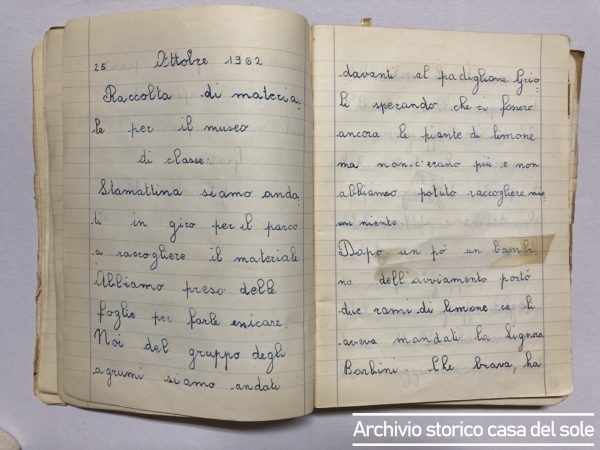 25 Ottobre 1962
Raccolta di materia
le per il museo
di classe.
Stamattina siamo anda
ti in giro per il parco
a raccogliere il materiale
Abbiamo preso delle
foglie per farle essicare.
Noi del gruppo degli
agrumi siamo andati
davanti al padiglione Grio
li sperando che ci fossero
ancora le piante di limone
ma non c'erano più e non
abbiamo potuto raccogliere
niente.
Dopo un pò un bambi
no dell'avviamento portò
due rami di limone ce li
aveva mandati la Signora
Bonbini. Che brava, ha
Archivio storico casa del sole